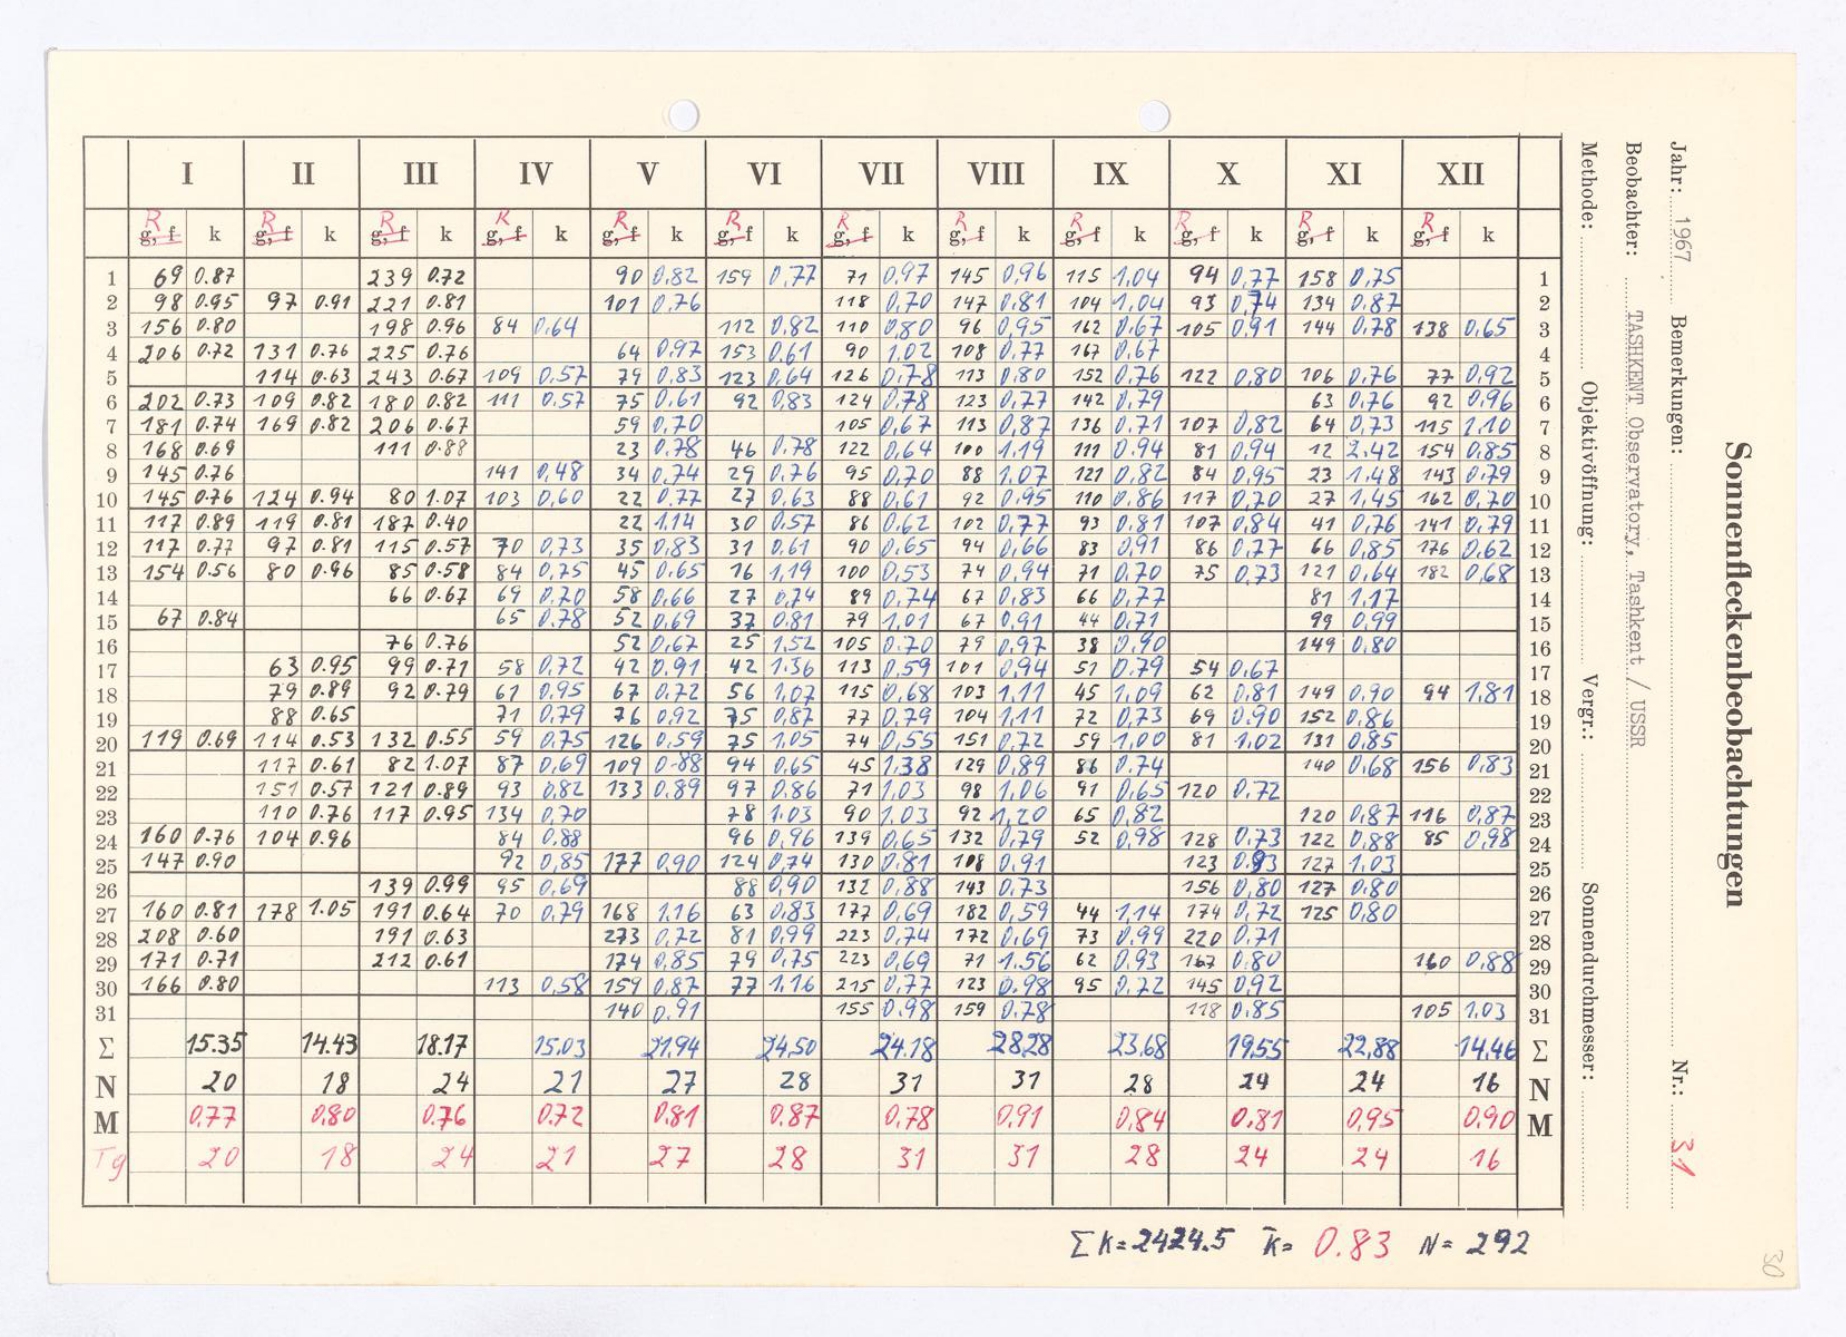 I II III IV V VI VII VIII IX X XI XII
R R R R R R R R R R R R
g, f k g, f k g, f k g, f k g, f k g, f k g, f k g, f k g, f k g, f k g, f k g, f k
1 69 0.87 239 0.72 90 0,82 159 0,77 71 0,97 145 0,96 115 1,04 94 0,77 158 0,75 1
2 98 0.95 97 0.91 221 0.81 101 0,76 118 0,70 147 0.81 104 1,04 93 0,74 134 0,87 2
3 156 0.80 198 0.96 84 0,64 112 0,82 110 0,80 96 0,95 162 0,67 105 0,91 144 0,78 138 0,65 3
4 206 0.72 131 0.76 225 0.76 64 0,97 153 0,61 90 1,02 108 0,77 167 0,67 4
5 114 0.63 243 0.67 109 0,57 79 0,83 123 0,64 126 0,78 113 0,80 152 0,76 122 0,80 106 0,76 77 0,92 5
6 202 0.73 109 0.82 180 0.82 111 0.57 75 0,61 92 0,83 124 0,78 123 0,77 142 0,79 63 0,76 92 0,96 6
7 181 0.74 169 0.82 206 0.67 59 0,70 105 0,67 113 0,87 136 0.71 107 0,82 64 0,73 115 1.10 7
8 168 0.69 111 0.88 23 0,78 46 0,78 122 0,64 100 1,19 111 0.94 81 0,94 12 2,42 154 0,85 8
9 145 0.76 141 0,48 34 0,74 29 0,76 95 0,70 88 1,07 121 0,82 84 0,95 23 1,48 143 0,79 9
10 145 0.76 124 0.94 80 1.07 103 0,60 22 0,77 27 0,63 88 0,61 92 0,95 110 0,86 117 0,70 27 1,45 162 0,70 10
11 117 0.89 119 0.81 187 0.40 22 1,14 30 0,57 86 0,62 102 0,77 93 0,81 107 0,84 41 0,76 141 0,79 11
12 117 0.77 97 0.81 115 0.57 70 0,73 35 0,83 31 0,61 90 0,65 94 0,66 83 0,91 86 0,77 66 0,85 176 0,62 12
13 154 0.56 80 0.96 85 0.58 84 0,75 45 0,65 16 1,19 100 0,53 74 0,94 71 0,70 75 0,73 121 0,64 182 0,68 13
14 66 0.67 69 0,70 58 0,66 27 0,74 89 0,74 67 0,83 66 0,77 81 1,17 14
15 67 0.84 65 0,78 52 0,69 37 0,81 79 1,01 67 0,91 44 0,71 99 0,99 15
16 76 0.76 52 0,67 25 1,52 105 0.70 79 0,97 38 0,90 149 0,80 16
17 63 0.95 99 0.71 58 0,72 42 0,91 42 1.36 113 0,59 101 0,94 51 0,79 54 0,67 17
18 79 0.89 92 0.79 61 0,95 67 0,72 56 1,07 115 0,68 103 1,11 45 1,09 62 0,81 149 0,90 94 1,81 18
19 88 0.65 71 0,79 76 0,92 75 0,87 77 0,79 104 1,11 72 0,73 69 0,90 152 0,86 19
20 119 0.69 114 0.53 132 0.55 59 0,75 126 0,59 75 1,05 74 0,55 151 0,72 59 1,00 81 1,02 131 0,85 20
21 117 0.61 82 1.07 87 0,69 109 0.88 94 0,65 45 1,38 129 0,89 86 0,74 140 0,68 156 0,83 21
22 151 0.57 121 0.89 93 0,82 133 0,89 97 0,86 71 1,03 98 1,06 91 0,65 120 0,72 22
23 110 0.76 117 0.95 134 0,70 78 1.03 90 1,03 92 1,20 65 0,82 120 0,87 116 0,87 23
24 160 0.76 104 0.96 84 0.88 96 0,96 139 0,65 132 0,79 52 0,98 128 0,73 122 0,88 85 0,98 24
25 147 0.90 92 0,85 177 0,90 124 0,74 130 0.81 108 0,91 123 0.93 127 1,03 25
26 139 0.99 95 0,69 88 0,90 132 0,88 143 0,73 156 0,80 127 0.80 26
27 160 0.81 178 1.05 191 0.64 70 0,79 168 1,16 63 0,83 177 0,69 182 0,59 44 1,14 174 0,72 125 0,80 27
28 208 0.60 191 0.63 273 0,72 81 0,99 223 0,74 172 0.69 73 0,99 220 0.71 28
29 171 0.71 212 0.61 174 0,85 79 0,75 223 0,69 71 1.56 62 0,93 167 0.80 160 0,88 29
30 166 0.80 113 0,58 159 0,87 77 1,16 215 0,77 123 0.98 95 0.72 145 0,92 30
31 140 0.91 155 0,98 159 0,78 118 0,85 105 1.03 31
Σ 15.35 14.43 18.17 15.03 21.94 24,50 24.18 28,28 23.68 19,55 22,88 14,46 Σ
N 20 18 24 21 27 28 31 31 28 24 24 16 N
M 0,77 0,80 0.76 0.72 0.81 0.87 0,78 0,91 0,84 0.81 0,95 0,90 M
Tg 20 18 24 21 27 28 31 31 28 24 24 16
Σk= 2424.5 k̄= 0.83 N= 292
Sonnenfleckenbeobachtungen
Jahr: 1967 Bemerkungen: Nr.: 31
Beobachter: TASHKENT Observatory, Tashkent / USSR
Methode: Objektivöffnung: Vergr.: Sonnendurchmesser:
30